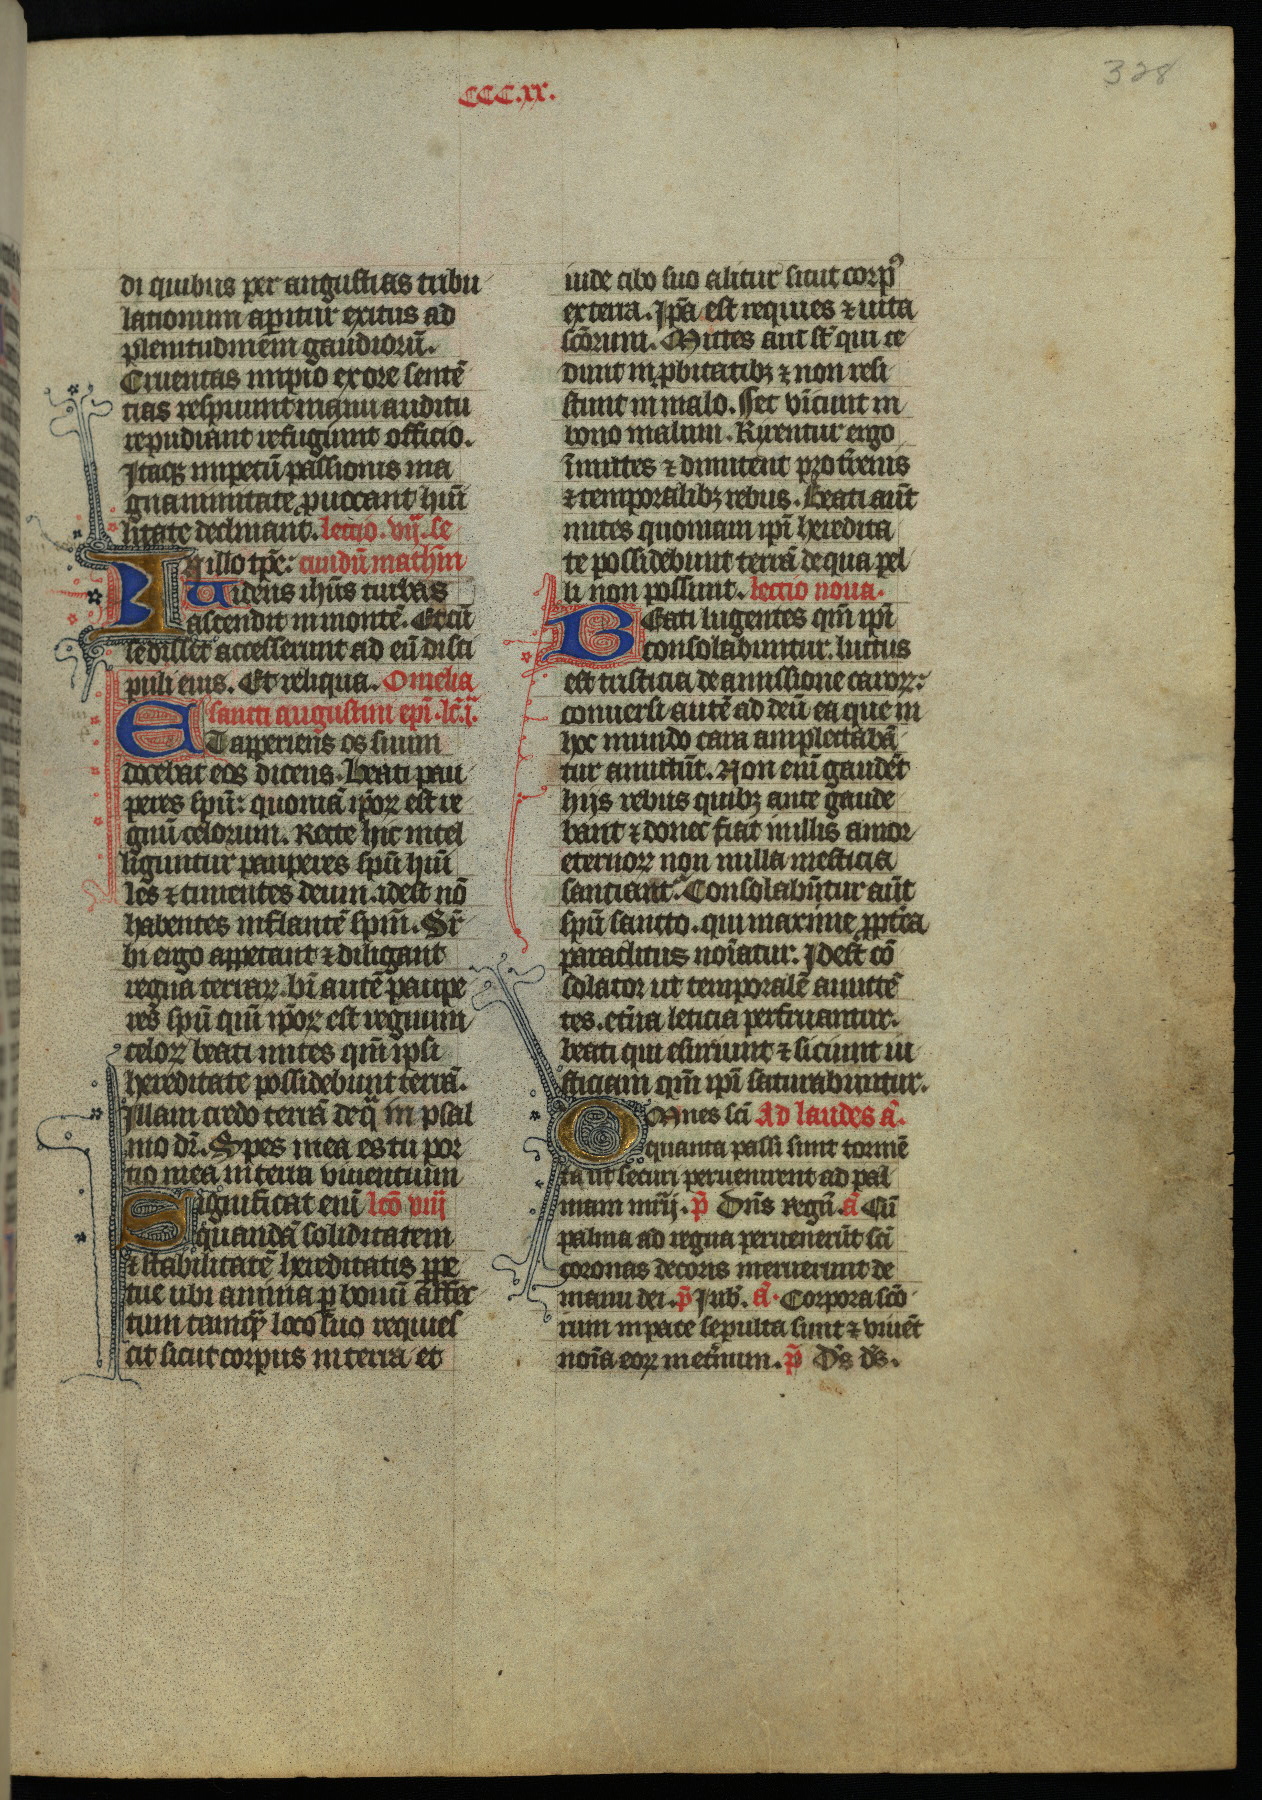 CCC.xx.
328
di quibus per angustias tribu
lationum apitur exitus ad
plenitudinem gaudiorū.
Cruentas impio ex ore sentē
tias respuunt manu auditu
repudiant refugiunt officio.
Itaqꝫ impetū passionis ma
gnanimitate puocant hui
litate declinant. lectio. vij. se
In illo tpe: cundū mathm
Uidens ihus turbas
ascendit in montē. Et cū
sedisset accesserunt ad eū disci
puli eius. Et reliqua. Omelia
sancti augustini epi. lc. j.
ET apperiens os suum
docebat eos dicens. Beati pau
peres spū: quoniā ipoꝝ est re
gnū celorum. Recte hic intel
liguntur pauperes spū hui
les ⁊ timentes deum. idest nō
habentes inflantē spm. Sr
bi ergo appetant ⁊ diligant
regna terraꝝ. bi autē paupe
res spū qm ipoꝝ est regnum
celoꝝ beati mites qm ipsi
hereditate possidebunt terrā.
Illam credo terrā de q in psal
mo dr. Spes mea es tu por
tio mea in terra viuentium
Significat eni lcō viij
quandā soliditatem
⁊ stabilitatē hereditatis ppe
tue ubi anima p bonū affec
tum tamqꝫ loco suo requies
cit sicut corpus in terra et
inde cibo suo alitur sicut corpꝰ
ex terra. Ipa est requies ⁊ uita
scōrum. Mites aut st qui ce
dunt inpbitatibꝫ ⁊ non resi
stunt in malo. Set vicunt in
bono malum. Rixentur ergo
imites ⁊ dimicent pro trenis
⁊ temporalibꝫ rebus. Beati aut
mites quoniam ipi heredita
te possidebunt terrā de qua pel
li non possunt. lectio nona.
BEati lugentes qm ipi
consolabuntur. luctus
est tristicia de amissione caroꝝ:
conuersi autē ad deū ea que in
hoc mundo cara amplectabā
tur amittūt. Non eni gaudēt
hijs rebus quibꝫ ante gaude
bant ⁊ donec fiat in illis amor
eternoꝝ non nulla mesticia
sauciant. Consolabūtur aut
spū sancto. qui maxime pptea
paraclitus noiatur: Idest cō
solator ut temporalē amitte
tes. etna leticia perfruantur.
beati qui esuriunt ⁊ siciunt iu
sticiam qm ipi saturabuntur.
OMnes sci Ad laudes a.
quanta passi sunt tormē
ta ut securi peruenirent ad pal
mam mrij. p Dns regn. a Cū
palma ad regna peruenerūt sci
coronas decoris meruerunt de
manu dei. p Iub. a. Corpora scō
rum in pace sepulta sunt ⁊ viuēt
noia eoꝝ in etnum. p Ds ds.